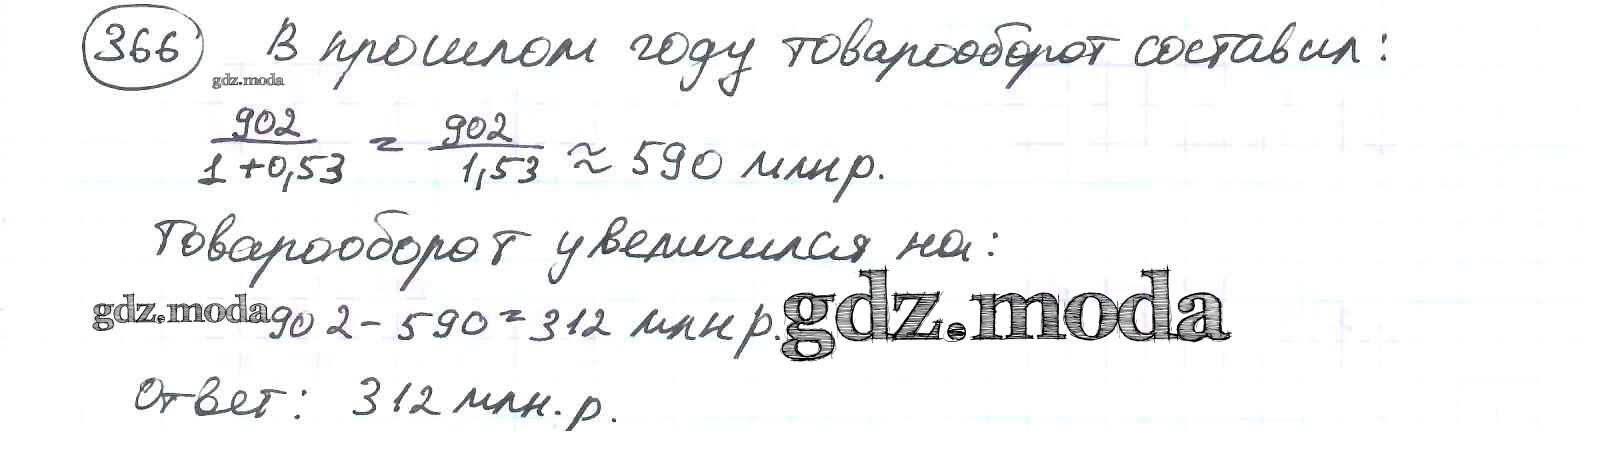 366 В прошлом году товарооборот составил:
gdz.moda
902/(1+0,53) = 902/1,53 ≈ 590 млн р.
Товарооборот увеличился на:
gdz.moda 902 - 590 = 312 млн р. gdz.moda
Ответ: 312 млн. р.